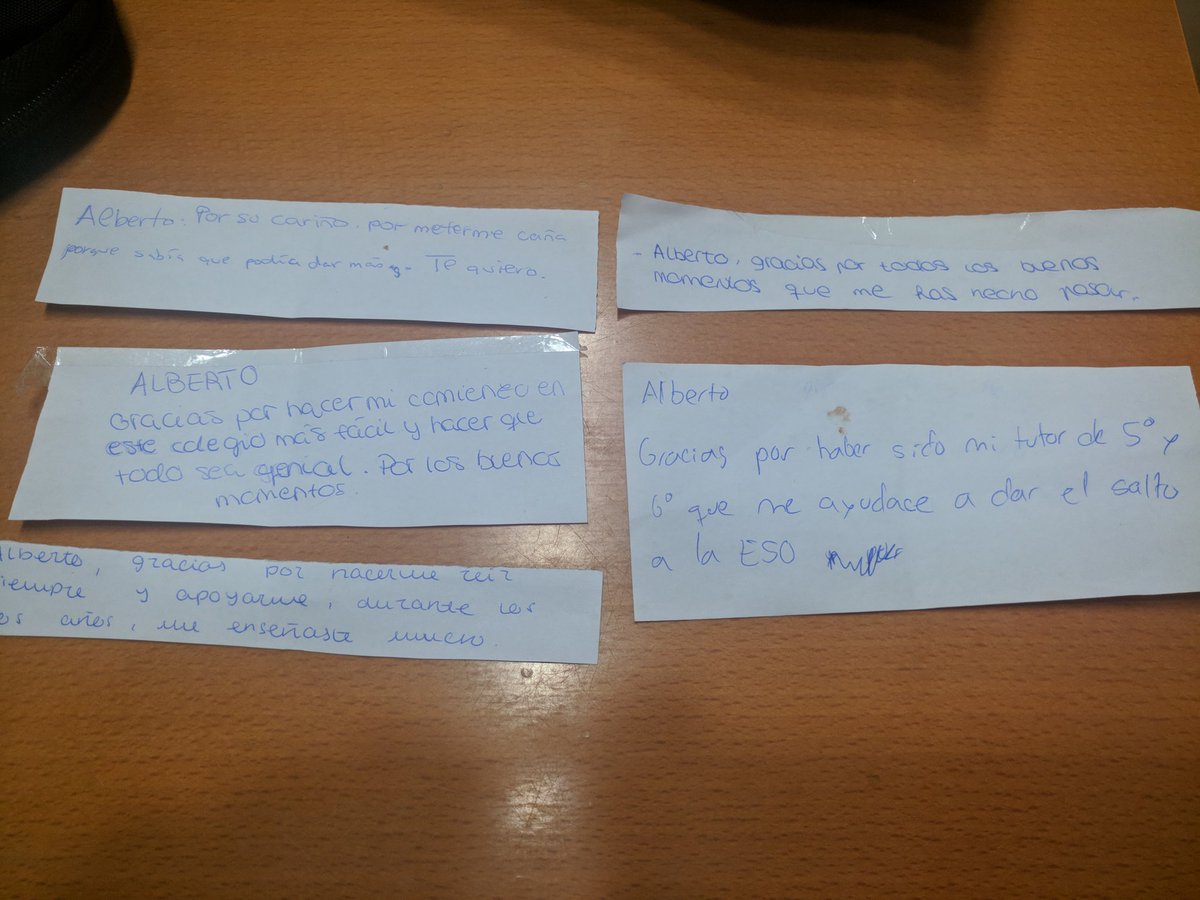 Alberto: Por su cariño, por meterme caña
porque sabía que podía dar más. Te quiero.
- Alberto, gracias por todos los buenos
momentos que me has hecho pasar.
ALBERTO
Gracias por hacer mi comienzo en
este colegio más fácil y hacer que
todo sea genial. Por los buenos
momentos.
Alberto
Gracias por haber sido mi tutor de 5º y
6º que me ayudace a dar el salto
a la ESO
Alberto, gracias por hacerme reir
siempre y apoyarme, durante los
años, me enseñaste mucho.